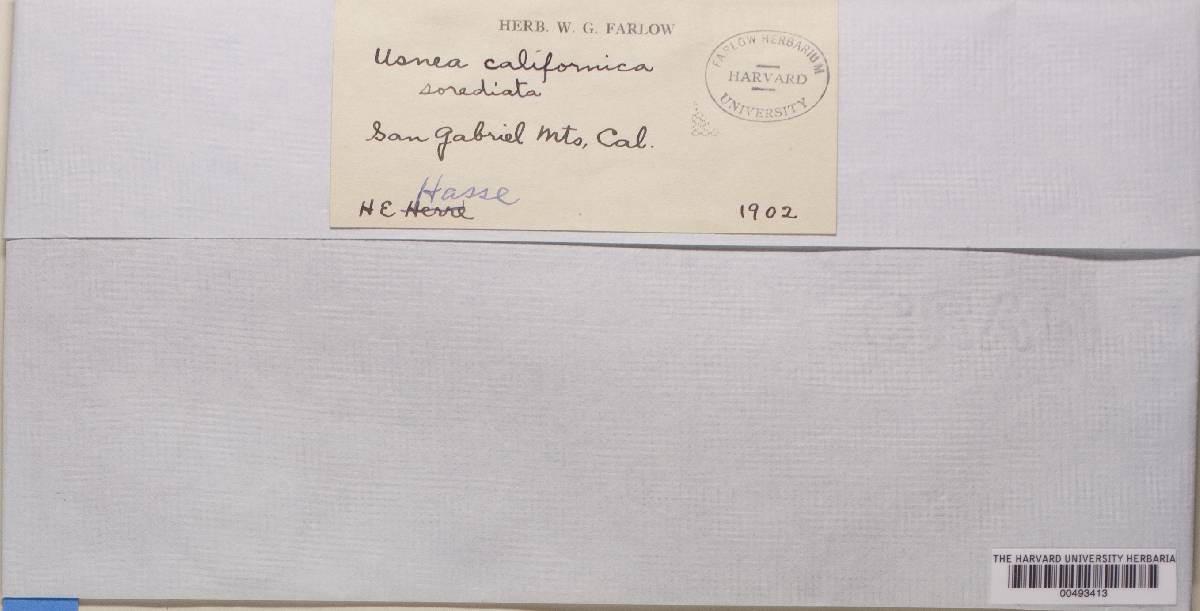 HERB. W. G. FARLOW
Usnea californica
sorediata
San Gabriel Mts, Cal.
Hasse
H E Herre
1902
FARLOW HERBARIUM
HARVARD
UNIVERSITY
THE HARVARD UNIVERSITY HERBARIA
00493413